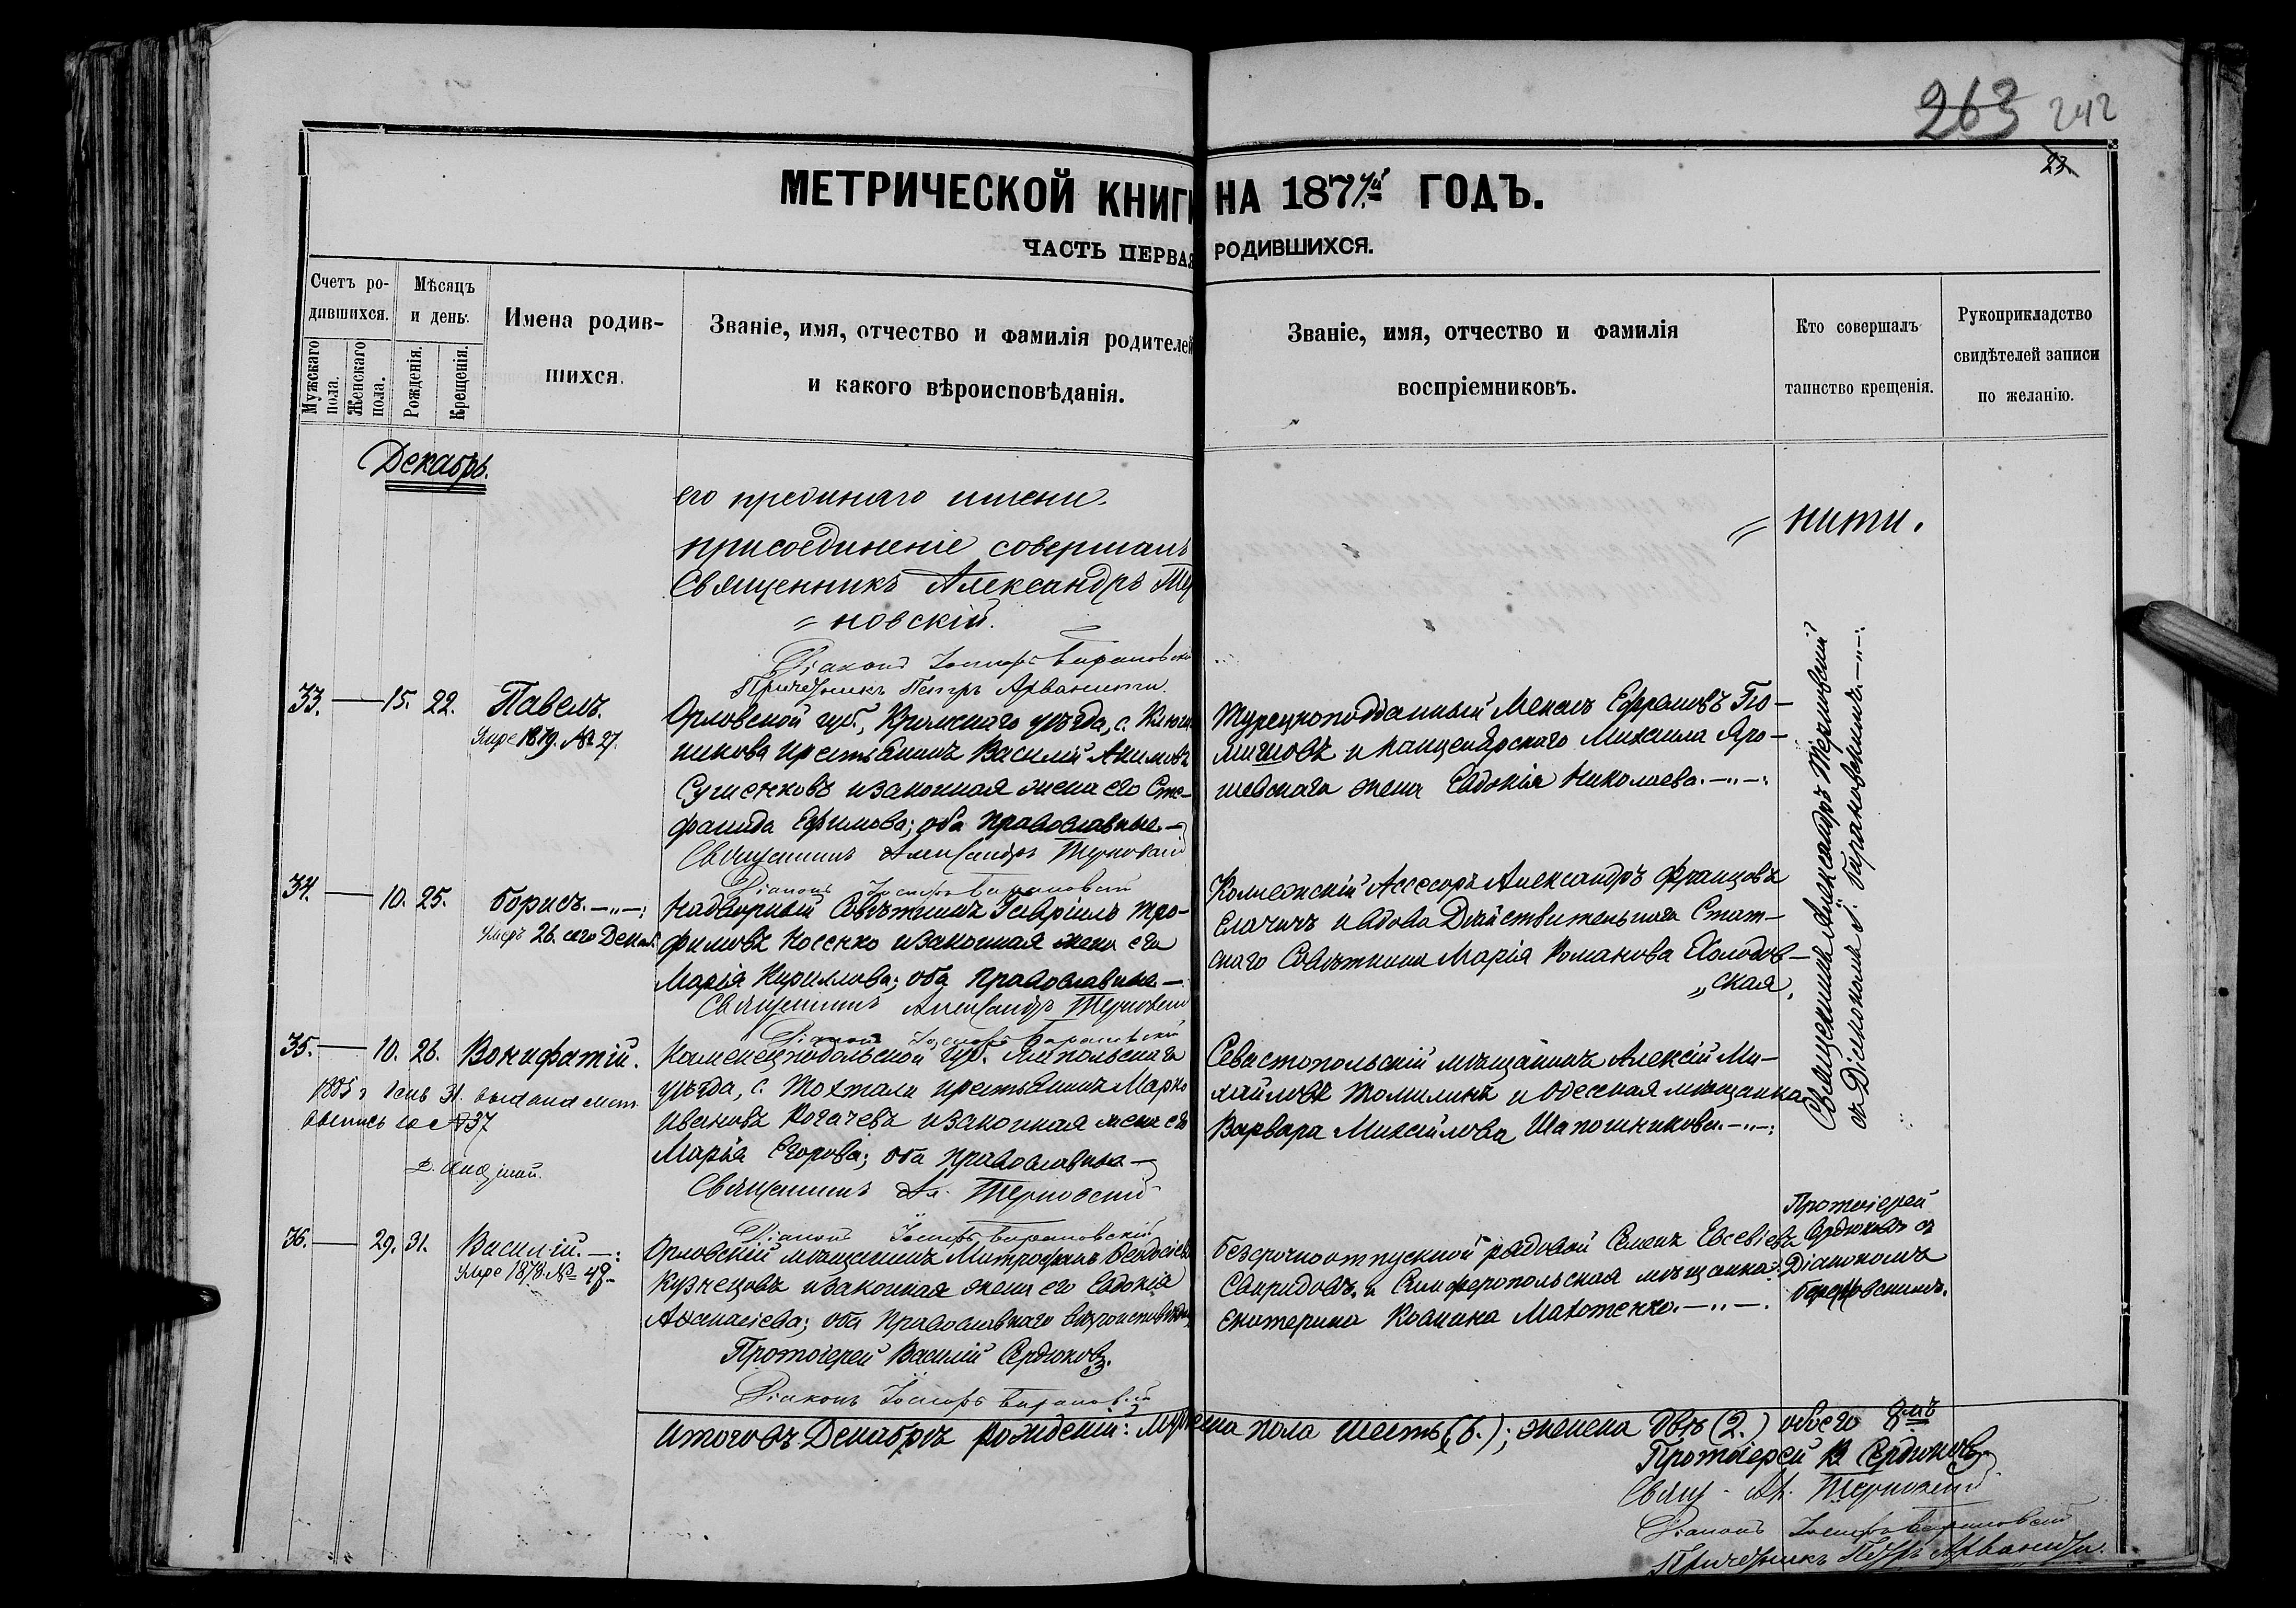 263 242
23
МЕТРИЧЕСКОЙ КНИГИ НА 1877й ГОДЪ.
ЧАСТЬ ПЕРВАЯ РОДИВШИХСЯ.
Счетъ ро-
дившихся.
Мужскаго пола.
Женскаго пола.
Мѣсяцъ
и день.
Рожденія.
Крещенія.
Имена родив-
шихся.
Званіе, имя, отчество и фамилія родителей
и какого вѣроисповѣданія.
Званіе, имя, отчество и фамилія
воспріемниковъ.
Кто совершалъ
таинство крещенія.
Рукоприкладство
свидѣтелей записи
по желанію.
Декабрь.
его имени.
присоединеніе совершалъ
Священникъ Александръ Тер
= новскій.
= нити.
Діаконъ Іосифъ Барановскій
Причетникъ Петръ Арванити.
33. — 15. 22. Павелъ.
Умре 1879. № 27.
Орловской губ., Кромскаго уѣзда, с.
никова крестьянинъ Василій Акимовъ
Сушенковъ и законная жена его Сте-
фанида Ефимова; оба православные.—
Священникъ Александръ Терновскій
Діаконъ Іосифъ Барановскій
Турецкоподданный
и Михаила Яро-
шевскаго жена Евдокія Николаева.—„—:
34. — 10. 25. Борисъ.—„—:
Умеръ 26. сего Декаб.
Надворный Совѣтникъ Гавріилъ Тро-
фимовъ Косенко и законная жена его
Марія Кириллова; оба православные—
Священникъ Александръ Терновскій
Діаконъ Іосифъ Барановскій
Коллежскій Ассесоръ Александръ Францовъ
и вдова Дѣйствительнаго Стат-
скаго Совѣтника Марія Романова Холодов-
„ская.
Священникъ Александръ Терновскій
съ Діакономъ І. Барановскимъ.—„—:
35. — 10. 26. Вонифатій.
1885 г. 31. выдана мет.
выпись за № 37
Каменецподольской губ.
уѣзда, с. крестьянинъ Марко
Ивановъ Когачевъ и законная жена его
Марія Егорова; оба православные—
Священникъ Ал. Терновскій
Діаконъ Іосифъ Барановскій
Севастопольскій мѣщанинъ Алексій Ми-
хайловъ Томилинъ и Одесская мѣщанка
Варвара Михайлова Шапошникова.—„—:
36. — 29. 31. Василій.—:
Умре 1878. № 48.
Орловскій мѣщанинъ Митрофанъ Ѳеодосіевъ
Кузнецовъ и законная жена его Евдокія
Аѳанасіева; оба Православнаго вѣроисповѣдан.
Протоіерей Василій Сердюковъ.
Діаконъ Іосифъ Барановскій
безсрочноотпускной рядовой Семенъ Евсевіевъ
Свиридовъ и Симферопольская мѣщанка
Екатерина Махотенко.—„—.
Протоіерей
Сердюковъ съ
Діакономъ
Барановскимъ.
Итого въ Декабрѣ рожденій: мужеска пола шесть (6.); женска двѣ (2.) обоего 8мь
Протоіерей В. Сердюковъ
Свящ. Ал. Терновскій
Діаконъ Іосифъ Барановскій
Причетникъ Петръ Арванити.